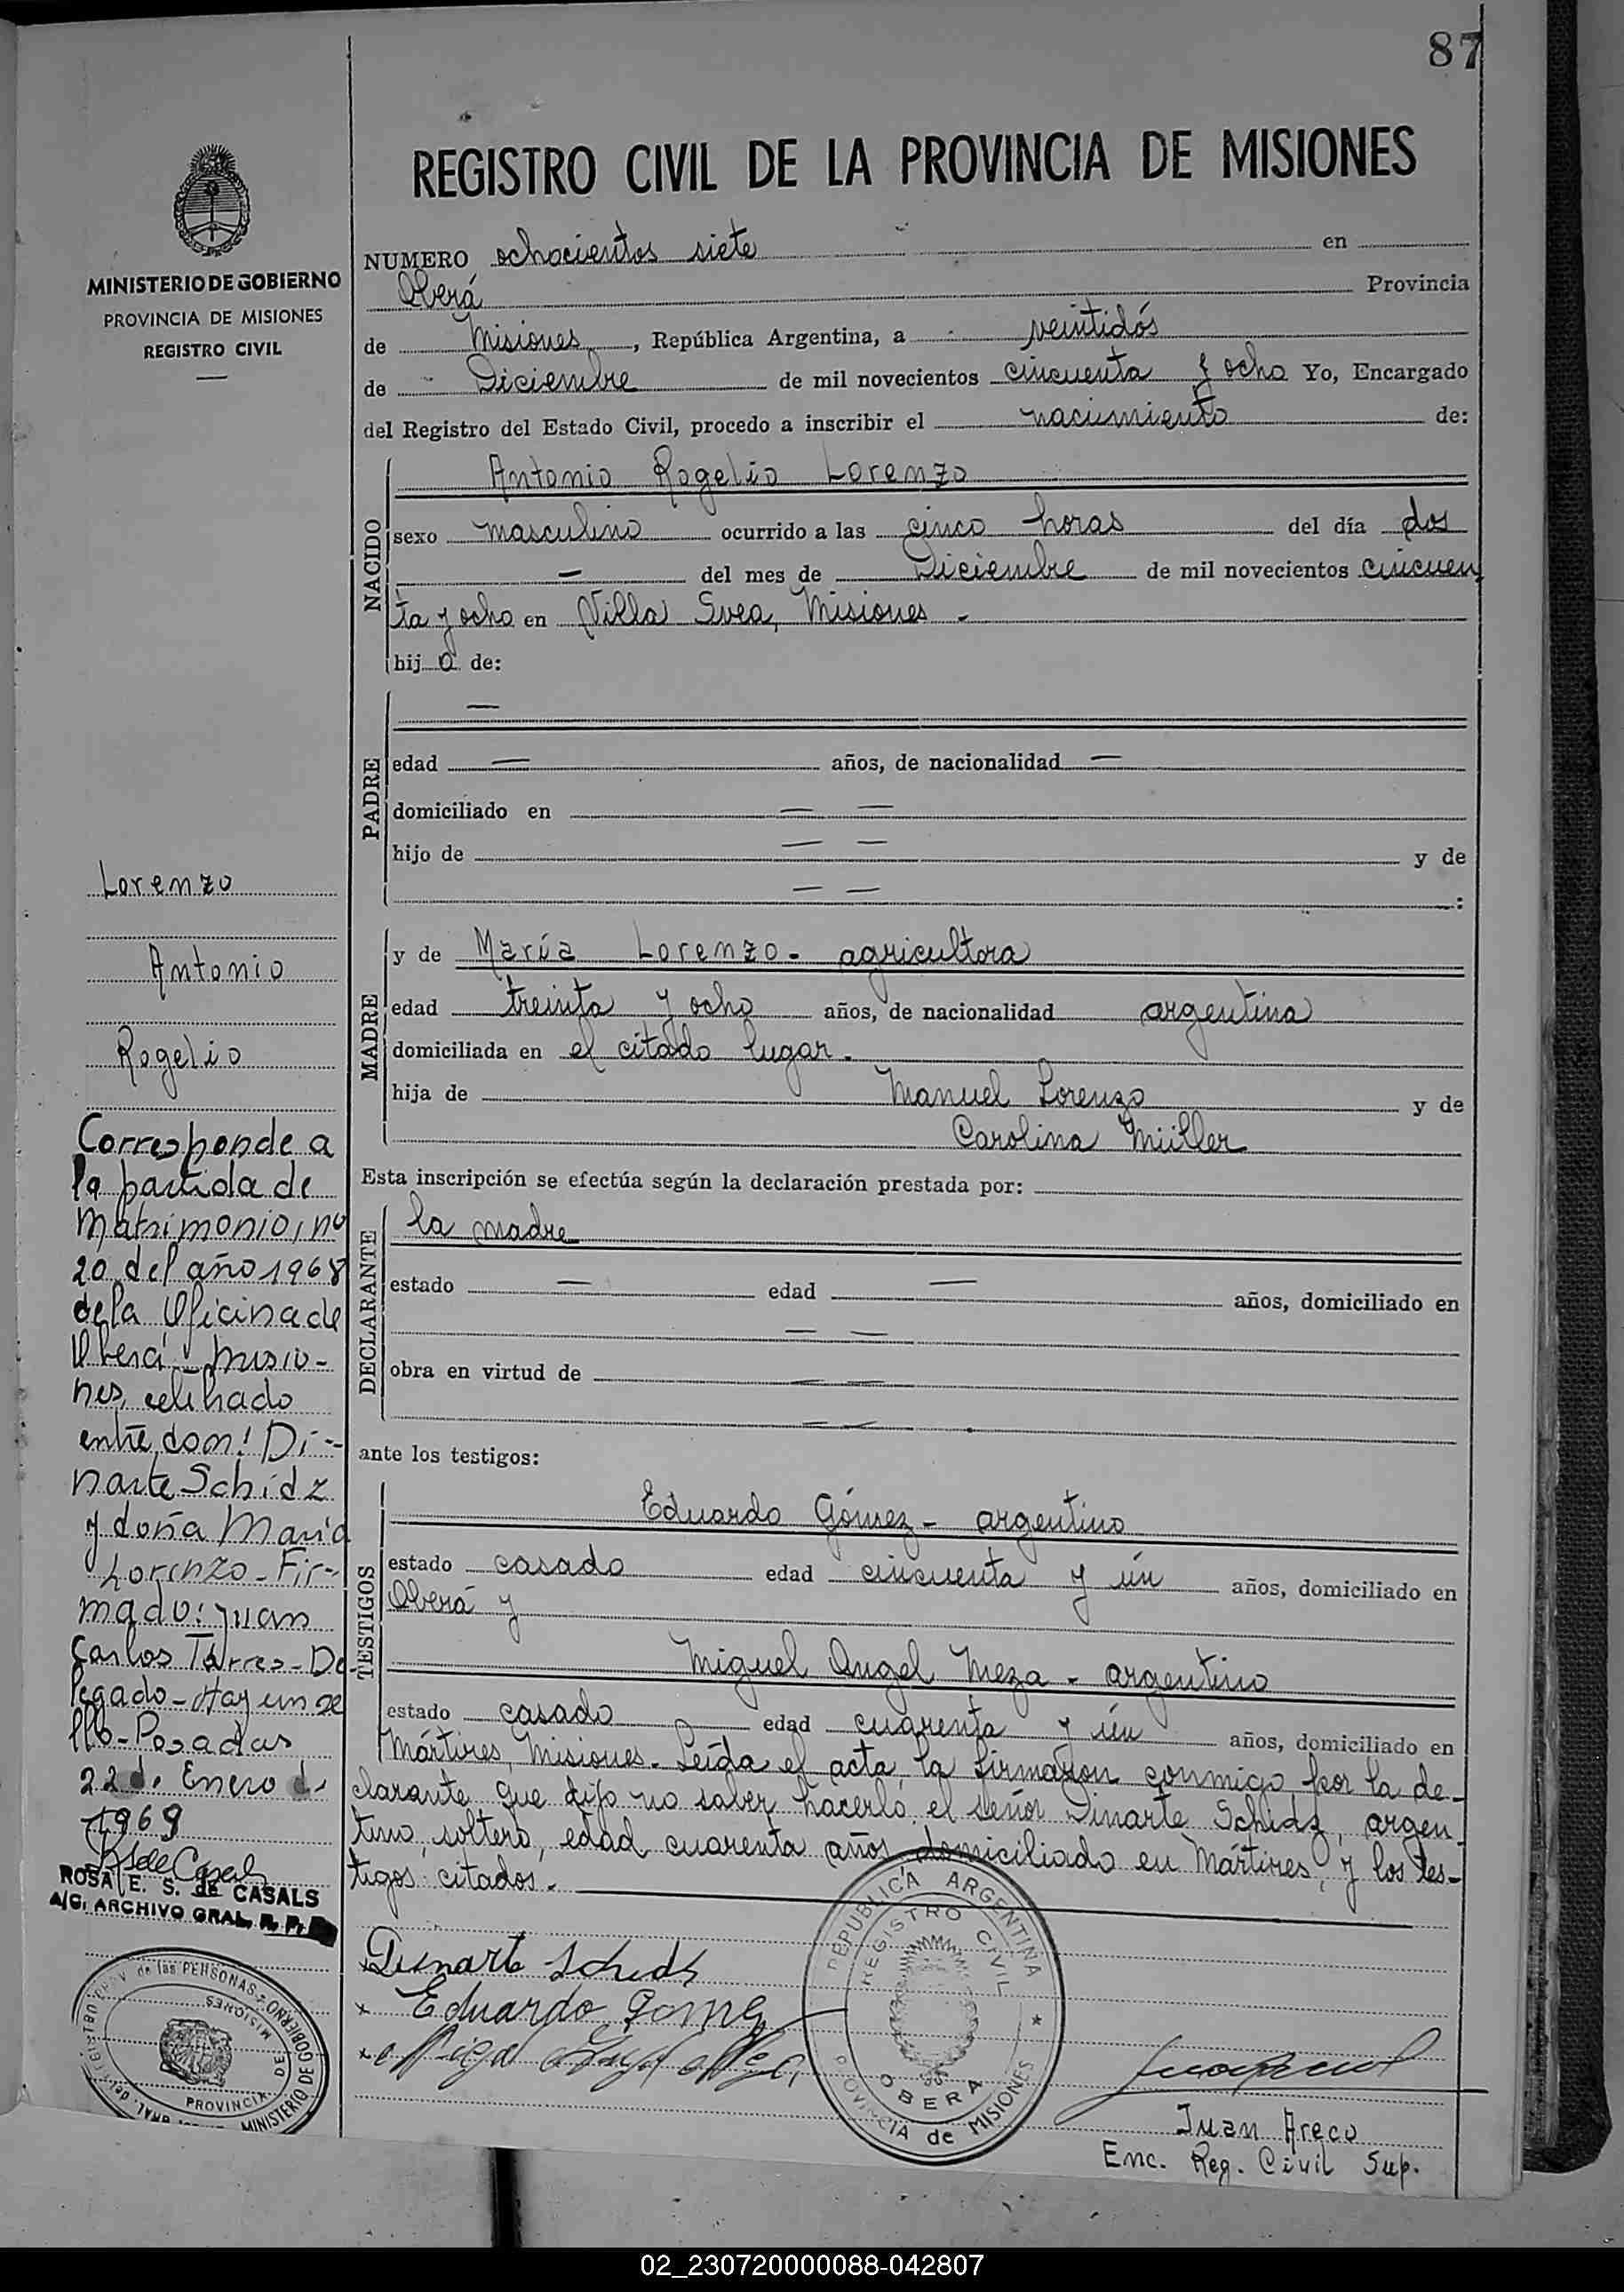 87
REGISTRO CIVIL DE LA PROVINCIA DE MISIONES
MINISTERIO DE GOBIERNO
PROVINCIA DE MISIONES
REGISTRO CIVIL
NUMERO ochocientos siete en
Oberá Provincia
de Misiones, República Argentina, a veintidós
de Diciembre de mil novecientos cincuenta y ocho Yo, Encargado
del Registro del Estado Civil, procedo a inscribir el nacimiento de:
NACIDO
Antonio Rogelio Lorenzo
sexo masculino ocurrido a las cinco horas del día dos
— del mes de Diciembre de mil novecientos cincuen
ta y ocho en Villa Svea, Misiones -
hij o de:
PADRE
—
edad — años, de nacionalidad —
domiciliado en — —
hijo de — — y de
— — :
MADRE
y de María Lorenzo - agricultora
edad treinta y ocho años, de nacionalidad argentina
domiciliada en el citado lugar.
hija de Manuel Lorenzo y de
Carolina Müller
Esta inscripción se efectúa según la declaración prestada por:
DECLARANTE
la madre
estado — edad — años, domiciliado en
— —
obra en virtud de — —
— —
ante los testigos:
TESTIGOS
Eduardo Gómez - argentino
estado casado edad cincuenta y ún años, domiciliado en
Oberá y
Miguel Angel Meza - argentino
estado casado edad cuarenta y ún años, domiciliado en
Mártires, Misiones. Leída el acta, la firmaron conmigo por la de-
clarante que dijo no saber hacerlo el señor Dinarte Schidz, argen-
tino, soltero, edad cuarenta años domiciliado en Mártires, y los tes-
tigos citados.
Lorenzo
Antonio
Rogelio
Corresponde a
la partida de
matrimonio, nº
20 del año 1968
de la Oficina de
Oberá - Misio-
nes, celebrado
entre don: Di-
narte Schidz
y doña María
Lorenzo - Fir-
mado: Juan
Carlos Torres - De-
legado - Hay un se
llo - Posadas
22 de Enero de
1969
R S de Casals
ROSA E. S. de CASALS
A/C. ARCHIVO GRAL. R. P.
de las PERSONAS - MINISTERIO DE GOBIERNO
PROVINCIA DE MISIONES
Dinarte Schidz
x Eduardo Gomez
x Miguel Angel Meza
REPUBLICA ARGENTINA
REGISTRO CIVIL
OBERA
PROVINCIA de MISIONES
Juan Areco
Enc. Reg. Civil Sup.
02_230720000088-042807